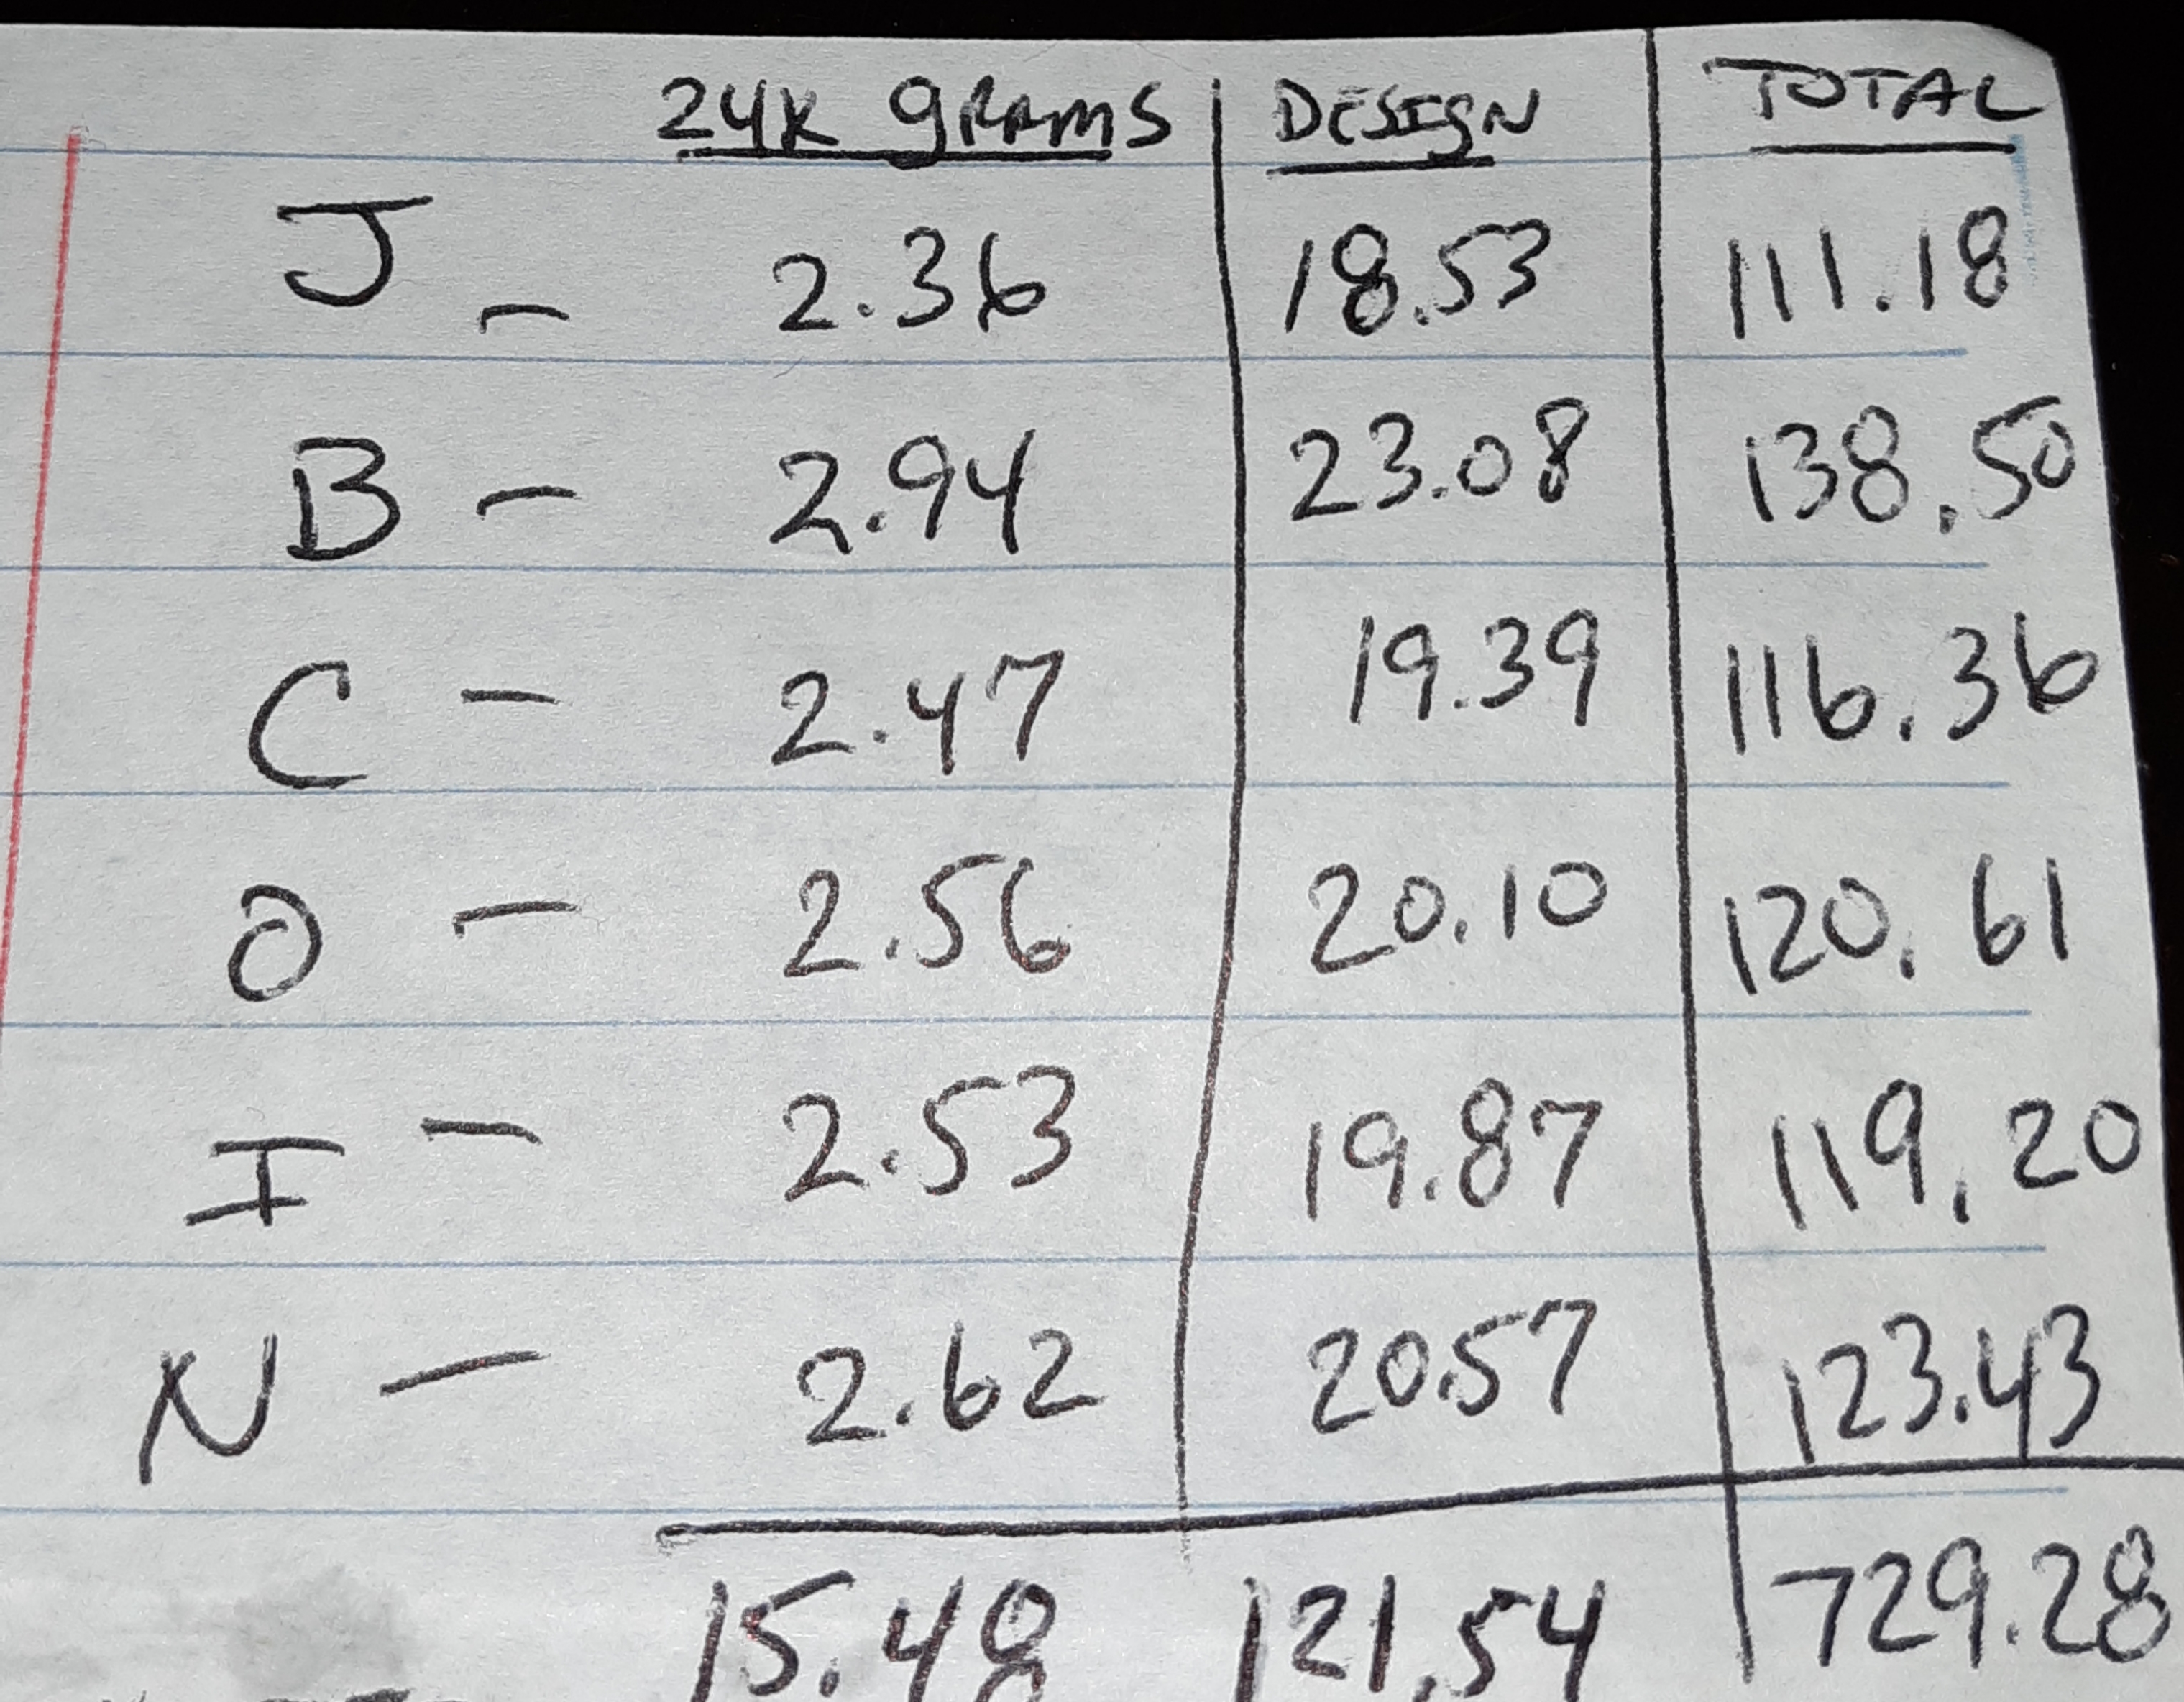 24K GRAMS DESIGN TOTAL
J - 2.36 18.53 111.18
B - 2.94 23.08 138.50
C - 2.47 19.39 116.36
O - 2.56 20.10 120.61
I - 2.53 19.87 119.20
N - 2.62 20.57 123.43
15.48 121.54 729.28